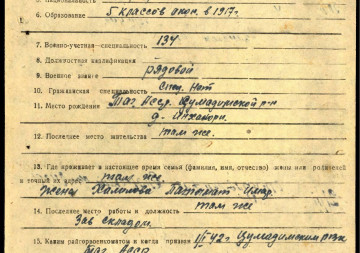 6. Образование 5 классов окон. в 1917г
7. Военно-учетная специальность 134
8. Должностная квалификация
9. Военное звание рядовой
10. Гражданская специальность Спец. Нет
11. Место рождения Даг. АССР. Цумадинский р-н
12. Последнее место жительства там же.
13. Где проживает в настоящее время семья (фамилия, имя, отчество) жены или родителей
и точный их адрес там же.
жена Халилова Патимат
14. Последнее место работы и должность там же
Зав складом.
15. Каким райгорвоенкоматом и когда призван Цумадинским рвк
Даг. АССР